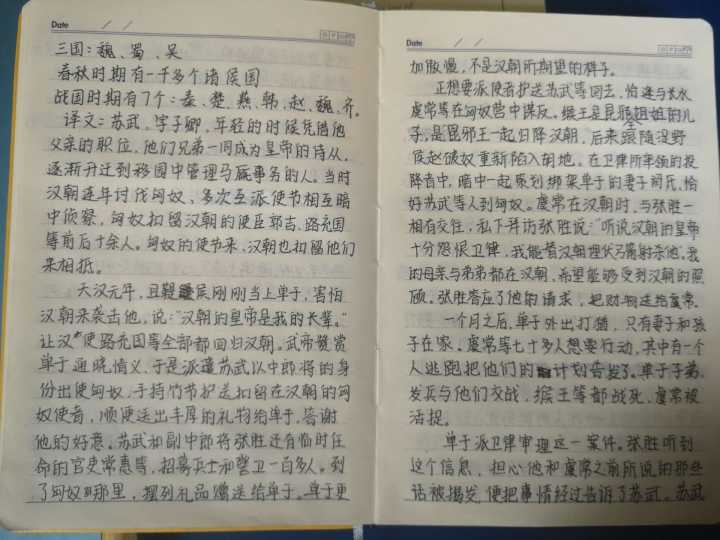 Date / /
三国：魏、蜀、吴
春秋时期有一千多个诸侯国
战国时期有7个：秦、楚、燕、韩、赵、魏、齐。
译文：苏武，字子卿，年轻的时候凭借他
父亲的职位，他们兄弟一同成为皇帝的侍从，
逐渐升迁到移园中管理马厩事务的人。当时
汉朝连年讨伐匈奴、多次互派使节相互暗
中侦察，匈奴扣留汉朝的使臣郭吉、路充国
等前后十余人。匈奴的使节来，汉朝也扣留他们
来相抵。
天汉元年，且鞮侯刚刚当上单于，害怕
汉朝来袭击他，说：“汉朝的皇帝是我的长辈。”
让汉使路充国等全部都回归汉朝。武帝赞赏
单于通晓情义，于是派遣苏武以中郎将的身
份出使匈奴，手持竹节护送扣留在汉朝的匈
奴使者，顺便送出丰厚的礼物给单于，答谢
他的好意。苏武和副中郎将张胜还有临时任
命的官吏常惠等，招募兵士和警卫一百多人。到
了匈奴那里，摆列礼品赠送给单于。单于更
Date / /
加傲慢，不是汉朝所期望的样子。
正想要派使者护送苏武等回去，恰逢与长水
虞常等在匈奴营中谋反。缑王是昆邪姐姐的儿
子，是昆邪王一起归降汉朝，后来跟随浞野
侯赵破奴重新陷入胡地。在卫律所率领的投
降者中，暗中一起策划绑架单于的妻子阏氏，恰
好苏武等人到匈奴。虞常在汉朝时，与张胜一
相有交往，私下拜访张胜说：“听说汉朝的皇帝
十分怨恨卫律，我能替汉朝埋伏弓箭射杀他。我
的母亲与弟弟都在汉朝，希望能够受到汉朝的照
顾。张胜答应了他的请求，把财物送给虞常。
一个月之后，单于外出打猎，只有妻子和孩
子在家。虞常等七十多人想要行动，其中有一个
人逃跑把他们的计划告发了。单于子弟
发兵与他们交战，缑王等都战死，虞常被
活捉。
单于派卫律审理这一案件。张胜听到
这个信息，担心他和虞常之前所说的那些
话被揭发，便把事情经过告诉了苏武。苏武